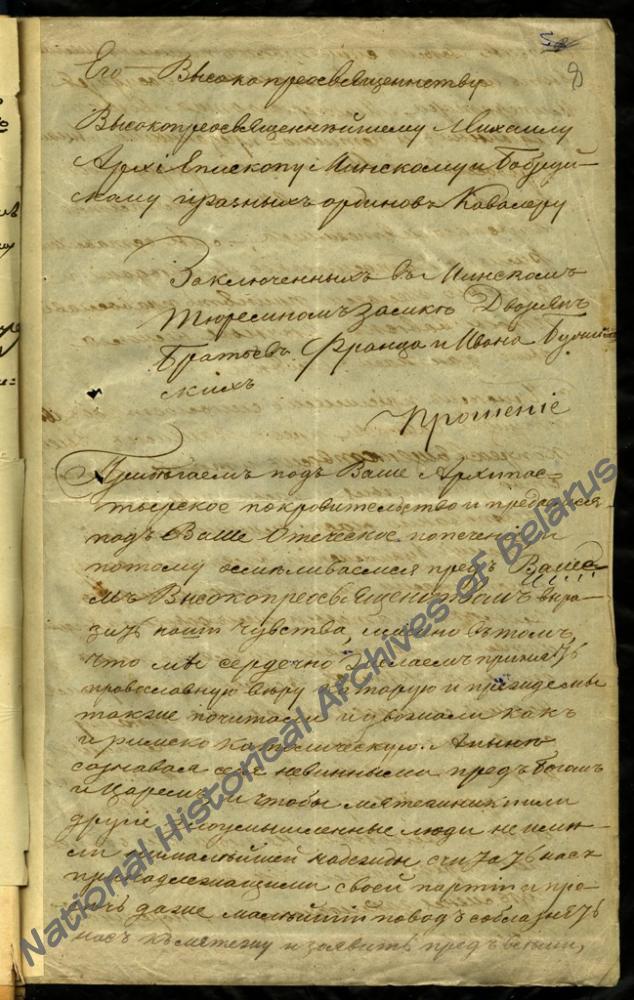 8
Его Высокопреосвященству
Высокопреосвященнѣйшему Михаилу
Архіепископу Минскому и Бобруй-
скому и разныхъ ординовъ Кавалеру
Заключенныхъ въ Минскомъ
Тюремномъ Замкѣ Дворянъ
Братьевъ Франца и Ивана
скихъ
Прошеніе
Прибѣгаемъ подъ Ваше Архипас-
тырское покровительство и предаемся
подъ Ваше Отеческое попеченіе и
потому осмѣливаемся предъ Ваше
мъ Высокопреосвященствомъ выра-
зить наши чувства, именно въ томъ,
что мы сердечно желаемъ принять
православную вѣру которую и прежде мы
также почитали и уважали какъ
и римско католическую. А нынѣ
сознавая себя невинными предъ Богомъ
и Царемъ, и чтобы мятежники или
другіе злоумышленные люди не имѣ-
ли ни малѣйшей надежды считать насъ
принадлежащими своей партіи и
даже малѣйшій поводъ соблазнять
насъ къ мятежу и заявить предъ всѣми,
National Historical Archives of Belarus